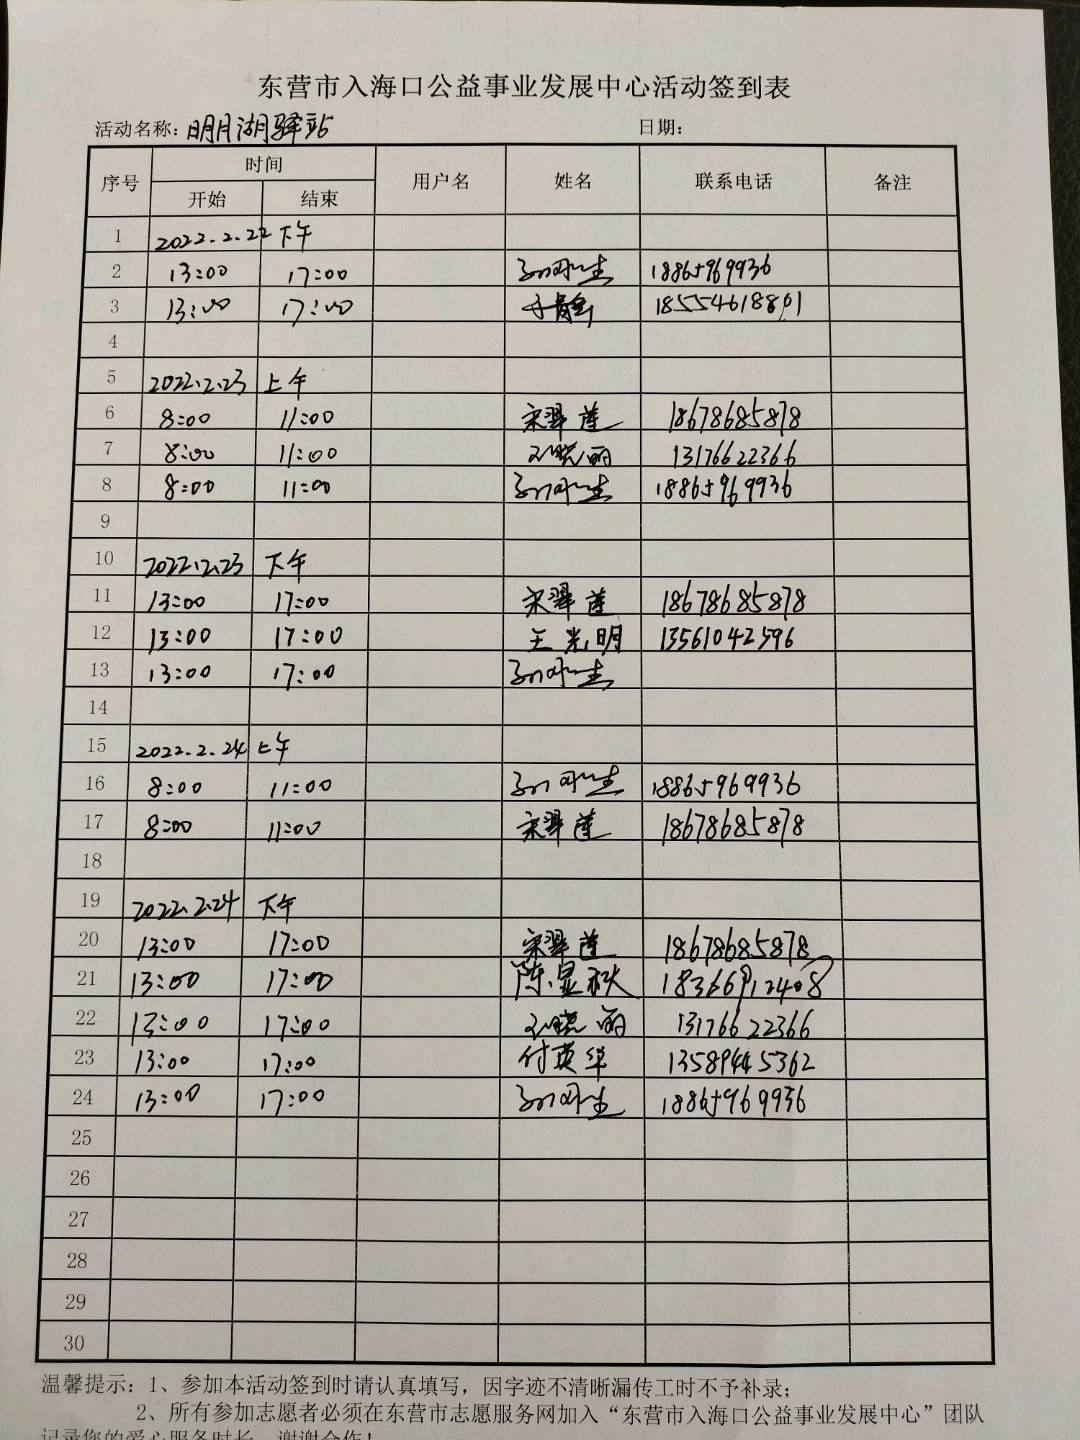 东营市入海口公益事业发展中心活动签到表
活动名称：明月湖驿站 日期：
序号 时间 用户名 姓名 联系电话 备注
开始 结束
1 2022.2.22 下午
2 13:00 17:00 18865969936
3 13:00 17:00 于静 18554618801
4
5 2022.2.23 上午
6 8:00 11:00 宋翠莲 18678685878
7 8:00 11:00 孙晓丽 13176622366
8 8:00 11:00 18865969936
9
10 2022.2.23 下午
11 13:00 17:00 宋翠莲 18678685878
12 13:00 17:00 王光明 13561042596
13 13:00 17:00
14
15 2022.2.24 上午
16 8:00 11:00 18865969936
17 8:00 11:00 宋翠莲 18678685878
18
19 2022.2.24 下午
20 13:00 17:00 宋翠莲 18678685878
21 13:00 17:00 陈显秋
22 13:00 17:00 孙晓丽 13176622366
23 13:00 17:00 付英华 13589445362
24 13:00 17:00 18865969936
25
26
27
28
29
30
温馨提示：1、参加本活动签到时请认真填写，因字迹不清晰漏传工时不予补录；
2、所有参加志愿者必须在东营市志愿服务网加入“东营市入海口公益事业发展中心”团队
记录您的爱心服务时长，谢谢合作！